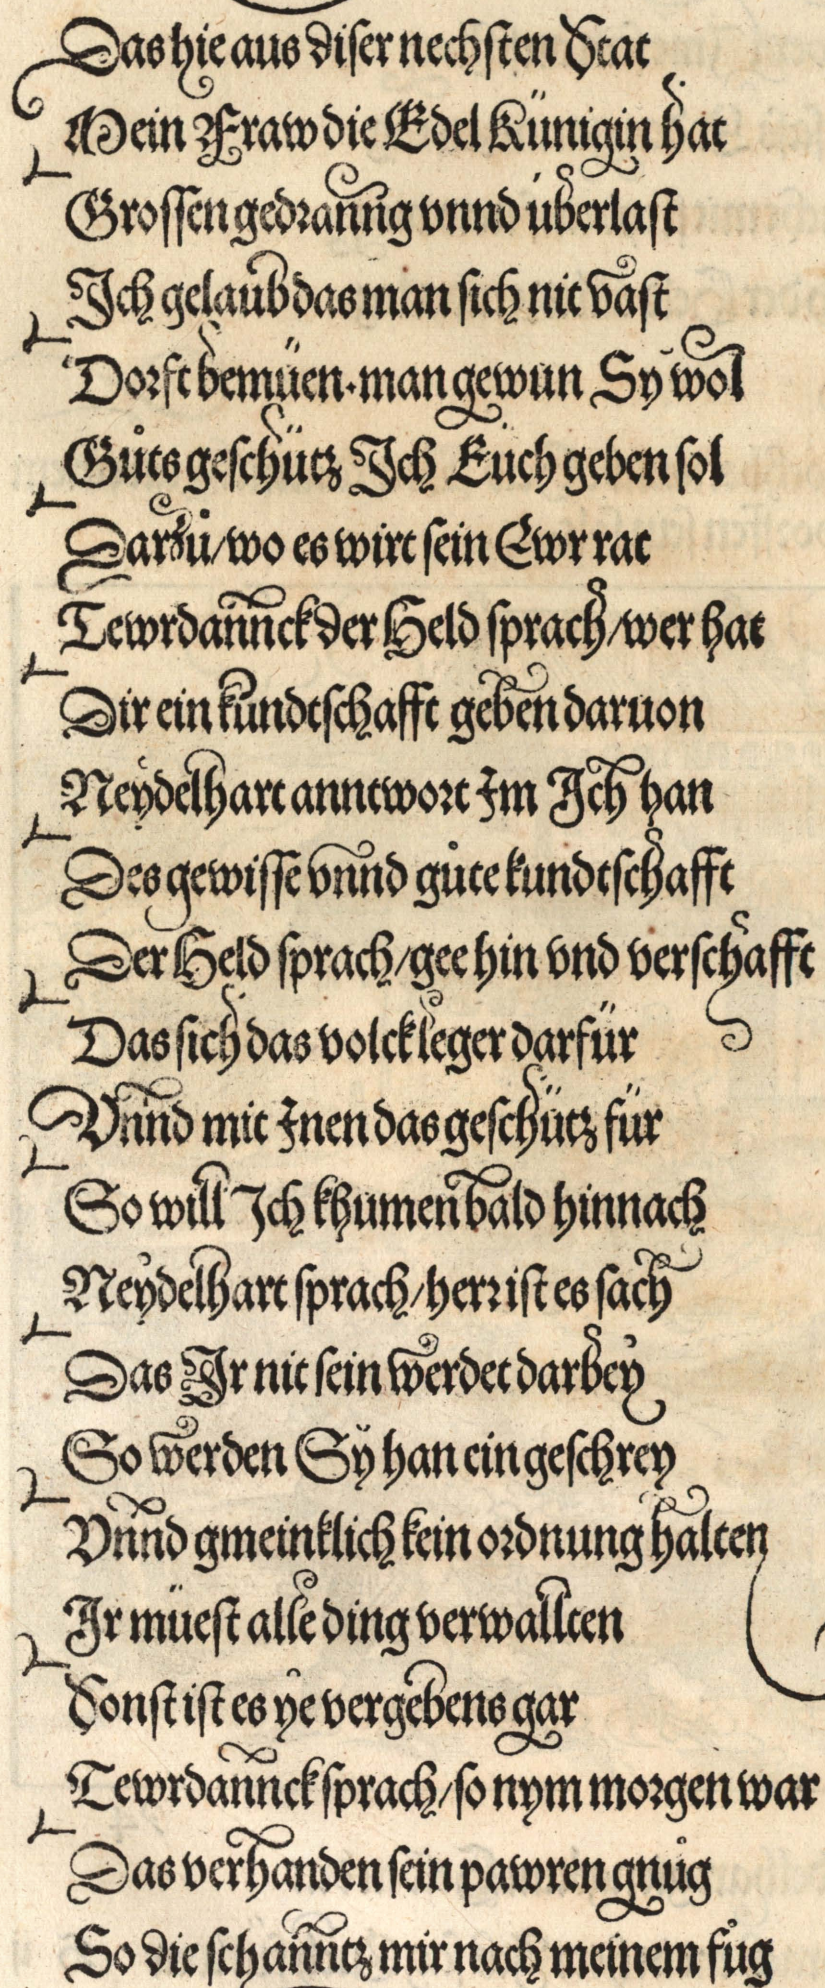 Das hie aus diser nechsten Stat
Mein Fraw die Edel Künigin hat
Grossen gedranng vnnd überlast
Ich gelaub das man sich nit vast
Dorft bemüen. man gewun Sy wol
Gůts geschütz Ich Eüch geben sol
Darzů/wo es wirt sein Ewr rat
Tewrdannck der Held sprach/wer hat
Dir ein kundtschafft geben daruon
Neydelhart anntwort Im Ich han
Des gewisse vnnd gůte kundtschafft
Der Held sprach/gee hin vnd verschafft
Das sich das volck leger darfür
Vnnd mit Inen das geschütz für
So will Ich khumen bald hinnach
Neydelhart sprach/herr ist es sach
Das Ir nit sein werdet darbey
So werden Sy han ein geschrey
Vnnd gmeinklich kein ordnung halten
Ir müest alle ding verwallten
Sonst ist es ye vergebens gar
Tewrdannck sprach/so nym morgen war
Das verhanden sein pawren gnůg
So die schanntz mir nach meinem fůg